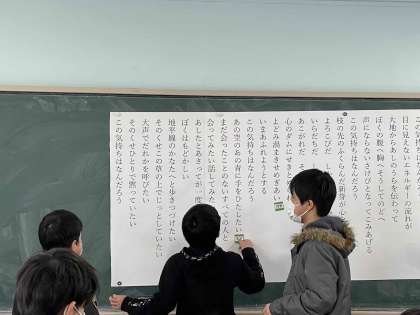 この気持ち
目に見えないエネルギーの流れが
大地からあしのうらを伝わって
ぼくの腹へ胸へそうしてのどへ
声にならないさけびとなってこみあげる
この気持ちはなんだろう
枝の先のふくらんだ新芽が心
よろこびだ し
いらだちだ
あこがれだ
心のダムにせきと
よどみ渦まきせめぎあい
いまあふれようとする
この気持ちはなんだろう
あの空のあの青に手をひたしたい
まだ会ったことのないすべての人と
会ってみたい話してみた
あしたとあさってが一度
ぼくはもどかしい
地平線のかなたへと歩きつづけたい
そのくせこの草の上でじっとしていたい
大声でだれかを呼びたい
そのくせひとりで黙っていたい
この気持ちはなんだろう